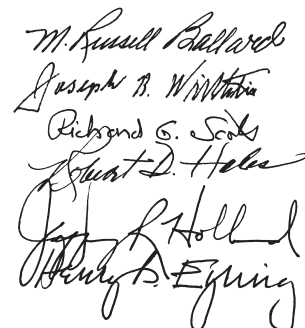 M. Russell Ballard
Joseph B. Wirthlin
Richard G. Scott
Robert D. Hales
Jeffrey R. Holland
Henry B. Eyring